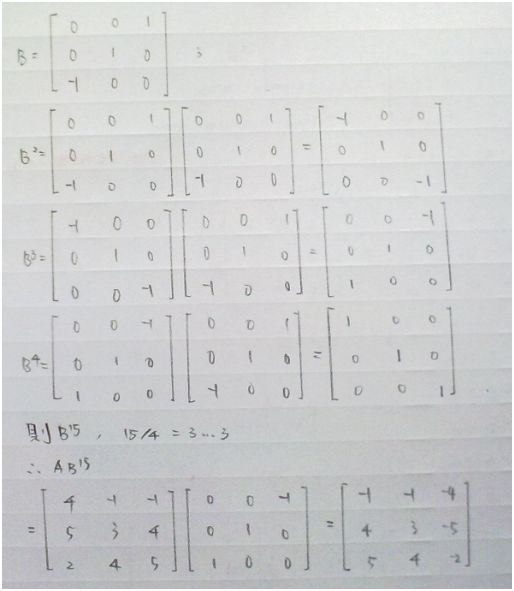 B = [ 0 0 1
0 1 0
-1 0 0 ] ;
B²= [ 0 0 1
0 1 0
-1 0 0 ] [ 0 0 1
0 1 0
-1 0 0 ] = [ -1 0 0
0 1 0
0 0 -1 ]
B³= [ -1 0 0
0 1 0
0 0 -1 ] [ 0 0 1
0 1 0
-1 0 0 ] = [ 0 0 -1
0 1 0
1 0 0 ]
B⁴= [ 0 0 -1
0 1 0
1 0 0 ] [ 0 0 1
0 1 0
-1 0 0 ] = [ 1 0 0
0 1 0
0 0 1 ]
则 B¹⁵ , 15/4 = 3...3
∴ AB¹⁵
= [ 4 -1 -1
5 3 4
2 4 5 ] [ 0 0 -1
0 1 0
1 0 0 ] = [ -1 -1 -4
4 3 -5
5 4 -2 ]